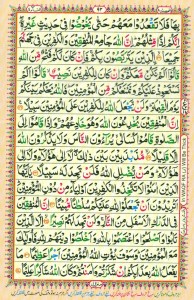 بِهَا فَلَا تَقْعُدُوْا مَعَهُمْ حَتّٰى يَخُوْضُوْا فِیْ حَدِیْثٍ غَیْرِهٖۤ
اِنَّكُمْ اِذًا مِّثْلُهُمْ اِنَّ اللّٰهَ جَامِعُ الْمُنٰفِقِیْنَ وَالْكٰفِرِیْنَ فِیْ جَهَنَّمَ
جَمِیْعًا الَّذِیْنَ یَتَرَبَّصُوْنَ بِكُمْ فَاِنْ كَانَ لَكُمْ فَتْحٌ مِّنَ اللّٰهِ
قَالُوْۤا اَلَمْ نَكُنْ مَّعَكُمْ وَاِنْ كَانَ لِلْكٰفِرِیْنَ نَصِیْبٌ قَالُوْۤا اَلَمْ
نَسْتَحْوِذْ عَلَیْكُمْ وَنَمْنَعْكُمْ مِّنَ الْمُؤْمِنِیْنَ فَاللّٰهُ یَحْكُمُ بَیْنَكُمْ
یَوْمَ الْقِیٰمَةِ وَلَنْ یَّجْعَلَ اللّٰهُ لِلْكٰفِرِیْنَ عَلَى الْمُؤْمِنِیْنَ سَبِیْلًا
اِنَّ الْمُنٰفِقِیْنَ یُخٰدِعُوْنَ اللّٰهَ وَهُوَ خَادِعُهُمْ وَاِذَا قَامُوْۤا اِلَى
الصَّلٰوةِ قَامُوْا كُسَالٰى یُرَآءُوْنَ النَّاسَ وَلَا یَذْكُرُوْنَ اللّٰهَ اِلَّا
قَلِیْلًا مُّذَبْذَبِیْنَ بَیْنَ ذٰلِكَ لَاۤ اِلٰى هٰۤؤُلَآءِ وَلَاۤ اِلٰى
هٰۤؤُلَآءِ وَمَنْ یُّضْلِلِ اللّٰهُ فَلَنْ تَجِدَ لَهٗ سَبِیْلًا یٰۤاَیُّهَا
الَّذِیْنَ اٰمَنُوْا لَا تَتَّخِذُوا الْكٰفِرِیْنَ اَوْلِیَآءَ مِنْ دُوْنِ الْمُؤْمِنِیْنَ
اَتُرِیْدُوْنَ اَنْ تَجْعَلُوْا لِلّٰهِ عَلَیْكُمْ سُلْطٰنًا مُّبِیْنًا اِنَّ الْمُنٰفِقِیْنَ
فِی الدَّرْكِ الْاَسْفَلِ مِنَ النَّارِ وَلَنْ تَجِدَ لَهُمْ نَصِیْرًا اِلَّا الَّذِیْنَ
تَابُوْا وَاَصْلَحُوْا وَاعْتَصَمُوْا بِاللّٰهِ وَاَخْلَصُوْا دِیْنَهُمْ لِلّٰهِ فَاُولٰٓئِكَ
مَعَ الْمُؤْمِنِیْنَ وَسَوْفَ یُؤْتِ اللّٰهُ الْمُؤْمِنِیْنَ اَجْرًا عَظِیْمًا مَا
یَفْعَلُ اللّٰهُ بِعَذَابِكُمْ اِنْ شَكَرْتُمْ وَاٰمَنْتُمْ وَكَانَ اللّٰهُ شَاكِرًا عَلِیْمًا